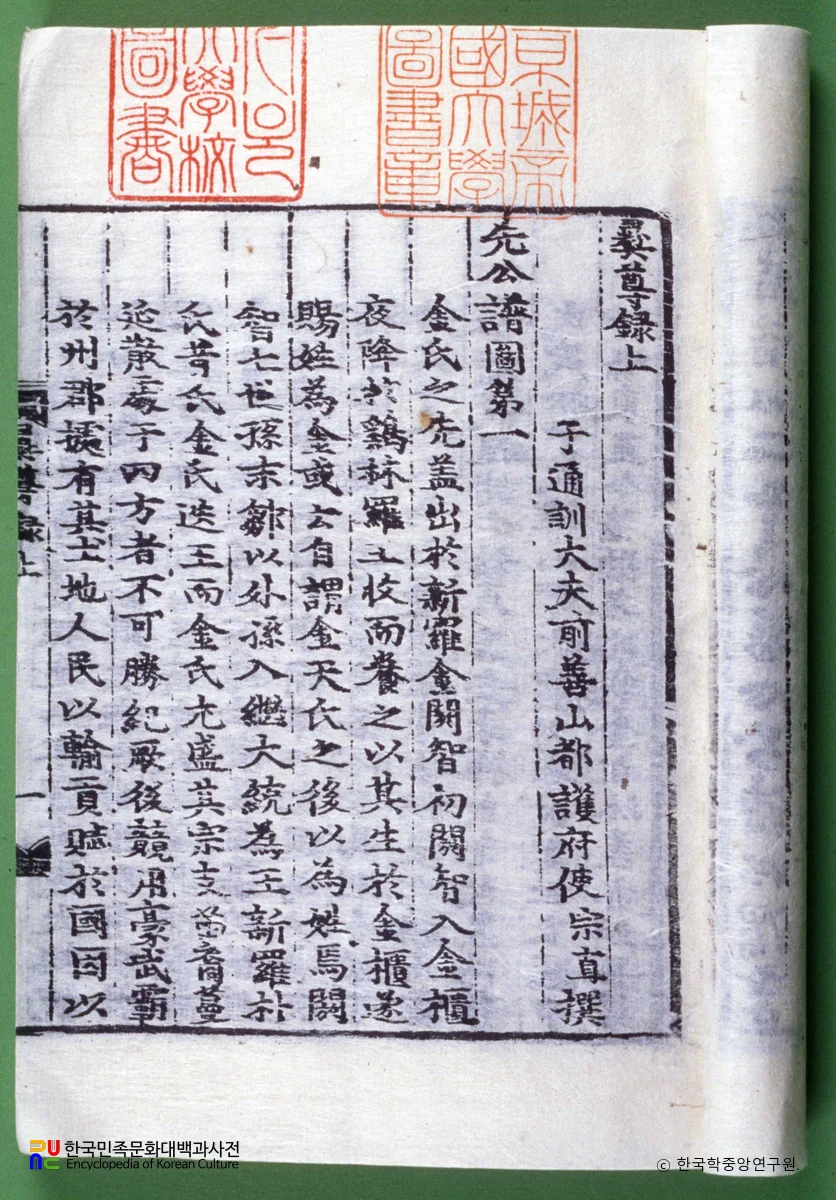 京城帝
國大學
圖書章
大學校
圖書
彛尊錄上
子通訓大夫前善山都護府使宗直撰
先公譜圖第一
金氏之先盖出於新羅金閼智初閼智入金櫃
夜降於鷄林羅王收而養之以其生於金櫃遂
賜姓為金或云自謂金天氏之後以為姓焉閼
智七世孫末鄒以外孫入繼大統為王新羅朴
氏昔氏金氏迭王而金氏尤盛其宗支裔蔓
延散處于四方者不可勝紀厥後競用豪武霸
於州郡據有其土地人民以輸貢賦於國因以
尊錄上
一
한국민족문화대백과사전
Encyclopedia of Korean Culture
© 한국학중앙연구원